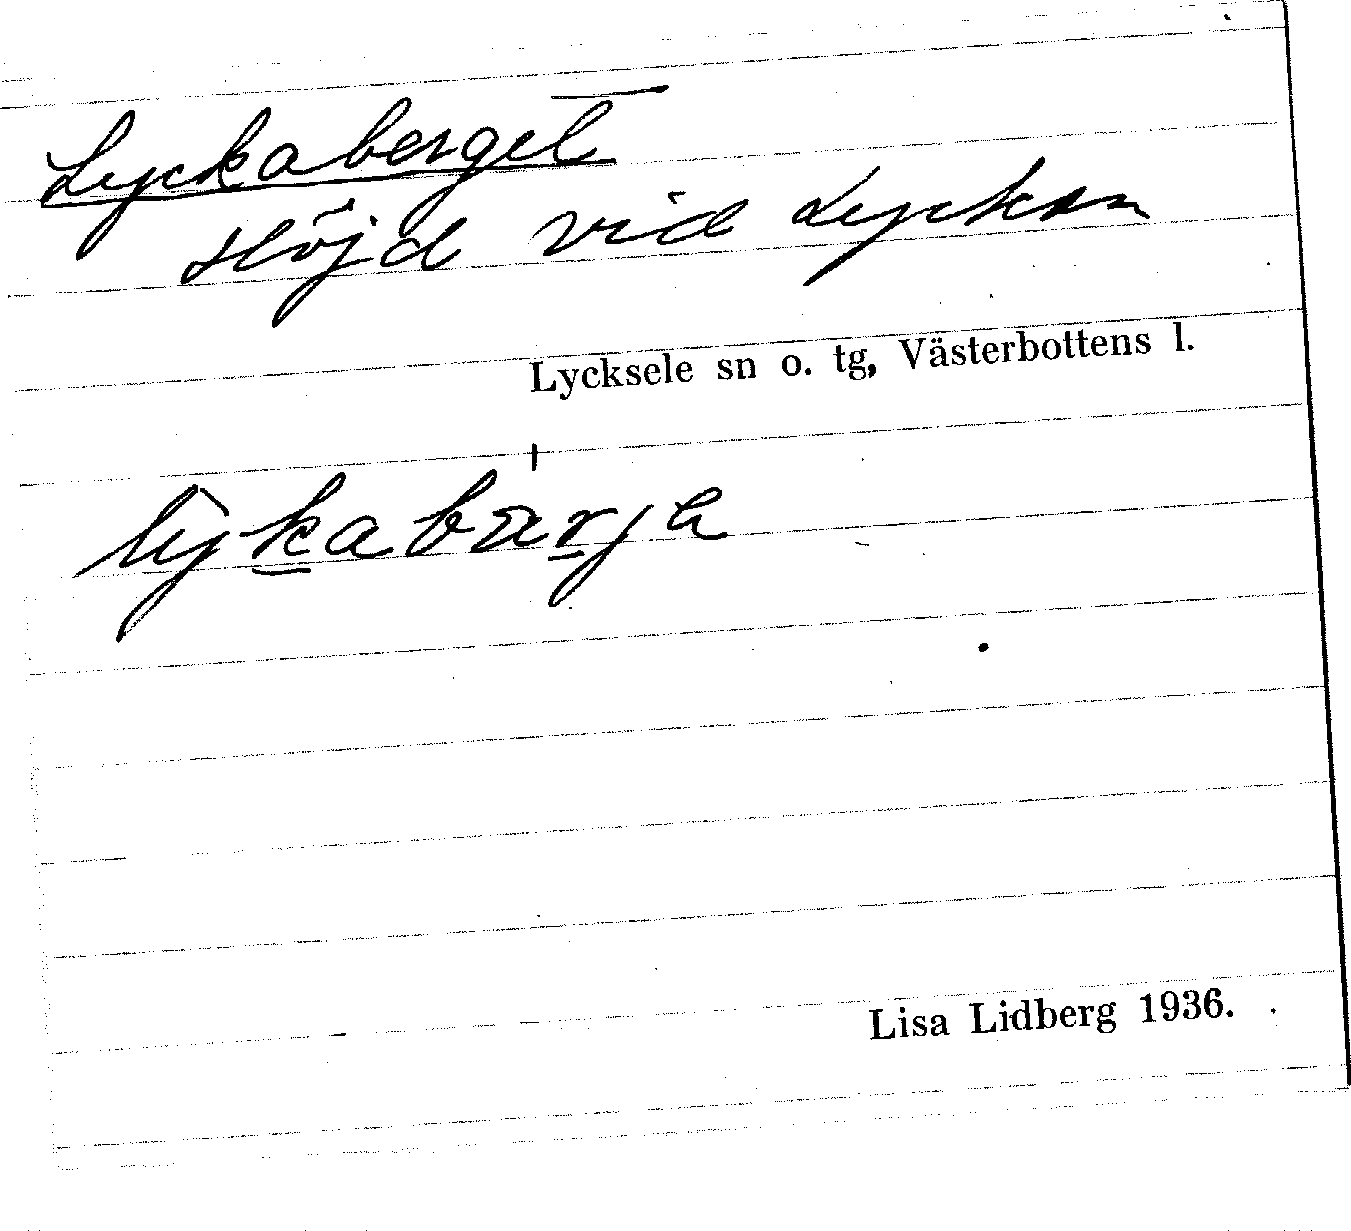 Lyckaberget
Höjd vid Lyckan
Lycksele sn o. tg, Västerbottens l.
Lisa Lidberg 1936.